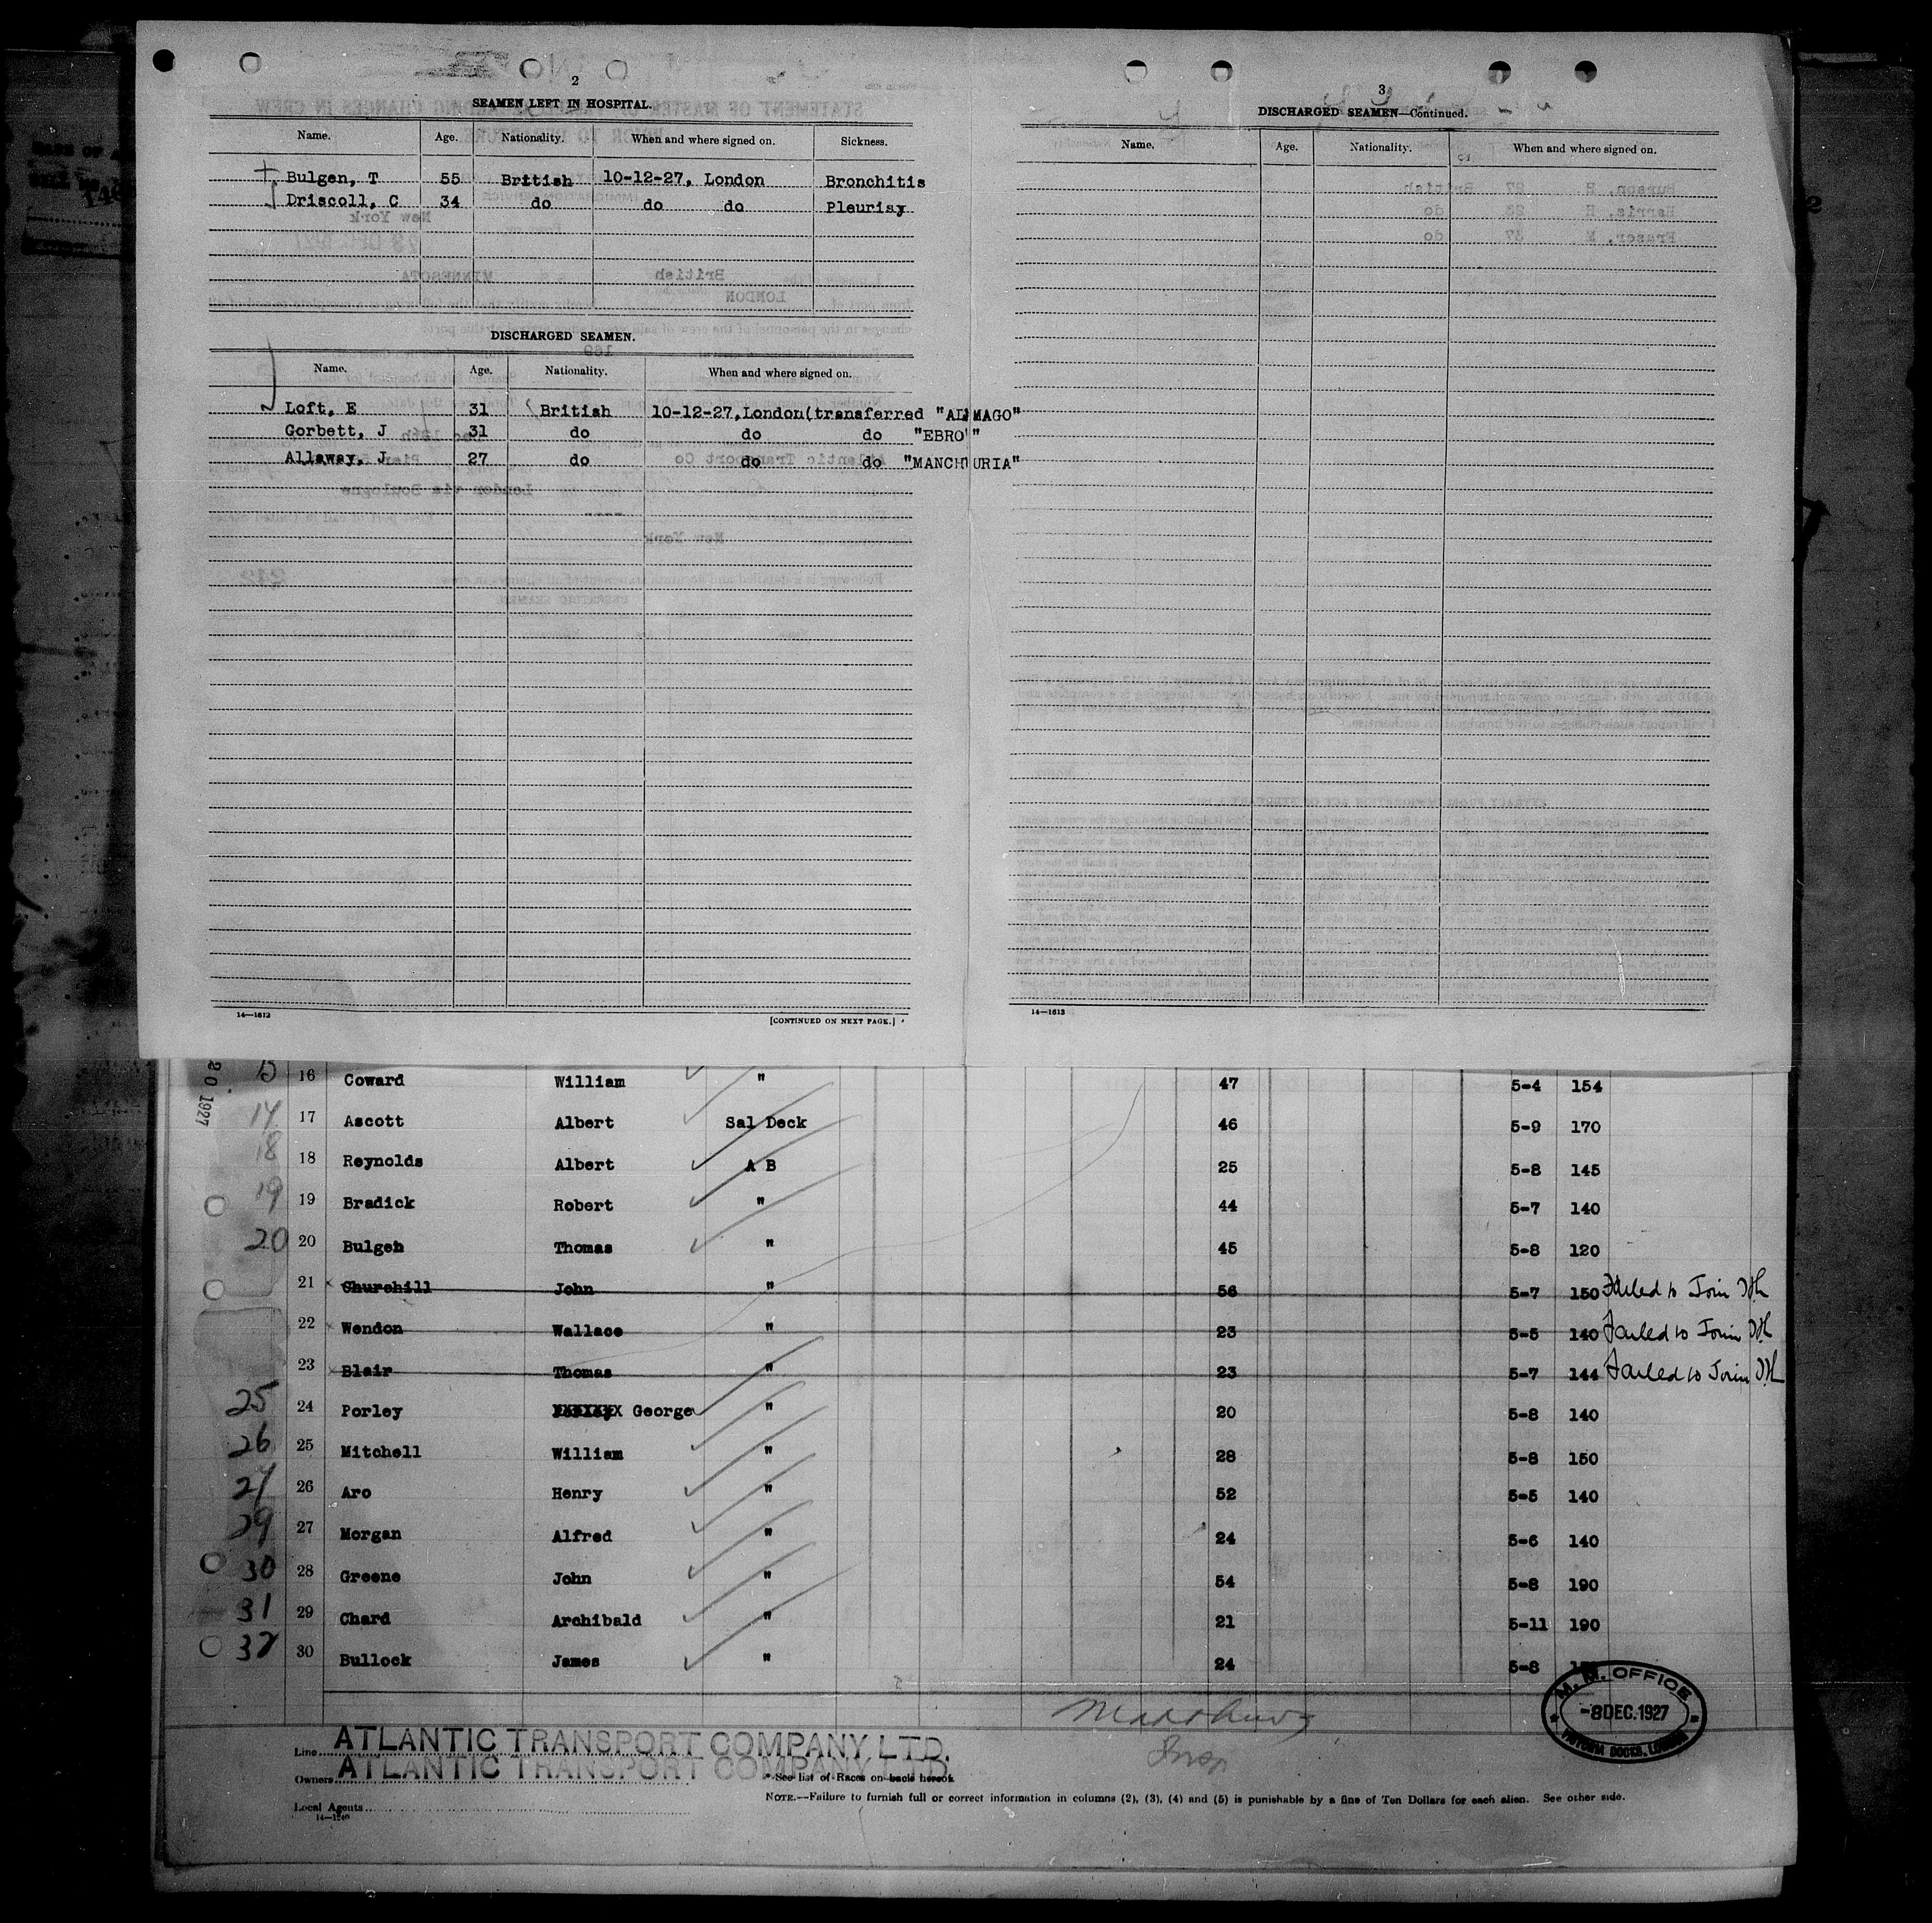 2
SEAMEN LEFT IN HOSPITAL.
Name. Age. Nationality. When and where signed on. Sickness.
Bulgen, T 55 British 10-12-27, London Bronchitis
Driscoll, C 34 do do do Pleurisy
DISCHARGED SEAMEN.
Name. Age. Nationality. When and where signed on.
Loft, E 31 British 10-12-27, London(transferred "ALMAGO"
Gorbett, J 31 do do do "EBRO"
Allaway, J 27 do do do "MANCHURIA"
14—1613
[CONTINUED ON NEXT PAGE.]
3
DISCHARGED SEAMEN—Continued.
Name. Age. Nationality. When and where signed on.
14—1613
20 1927
15 16 Coward William " 47 5-4 154
17 17 Ascott Albert Sal Deck 46 5-9 170
18 18 Reynolds Albert A B 25 5-8 145
19 19 Bradick Robert " 44 5-7 140
20 20 Bulgen Thomas " 45 5-8 120
21 Churchill John " 56 5-7 150 Failed to Join
22 Wendon Wallace " 23 5-5 140 Failed to Join
23 Blair Thomas " 23 5-7 144 Failed to Join
25 24 Porley George " 20 5-8 140
26 25 Mitchell William " 28 5-8 150
27 26 Aro Henry " 52 5-5 140
29 27 Morgan Alfred " 24 5-6 140
30 28 Greene John " 54 5-8 190
31 29 Chard Archibald " 21 5-11 190
32 30 Bullock James " 24 5-8
M. M. OFFICE
-8 DEC. 1927
VICTORIA DOCKS, LONDON
Matthews
Insp
Line ATLANTIC TRANSPORT COMPANY, LTD.
Owners ATLANTIC TRANSPORT COMPANY, LTD.
* See list of Races on back hereof.
Local Agents
14—1240
NOTE.—Failure to furnish full or correct information in columns (2), (3), (4) and (5) is punishable by a fine of Ten Dollars for each alien. See other side.